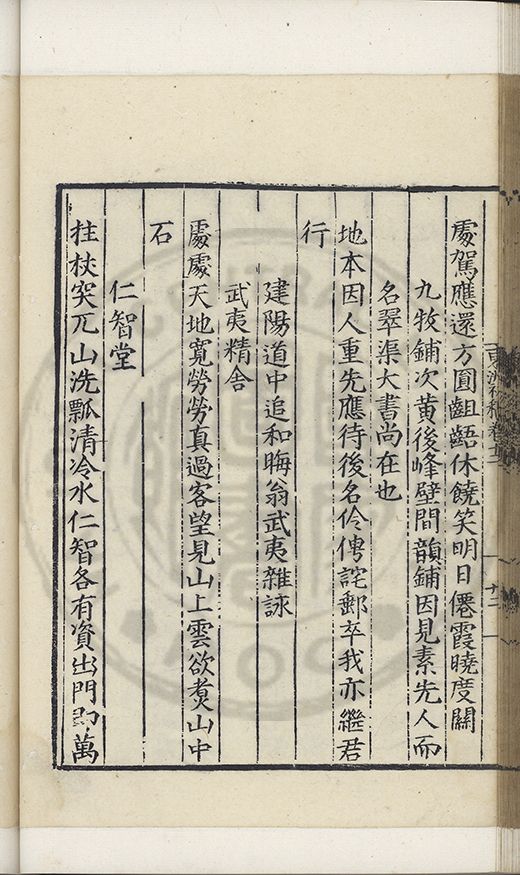 處駕應還方圓齟齬休饒笑明日僊霞曉度關
九牧鋪次黃後峰壁間韻鋪因見素先人而
名翠渠大書尚在也
地本因人重先應待後名伶俜詫郵卒我亦繼君
行
建陽道中追和晦翁武夷雜詠
武夷精舍
處處天地寬勞勞真過客望見山上雲欲煮山中
石
仁智堂
拄杖突兀山洗瓢清冷水仁智各有資出門即萬